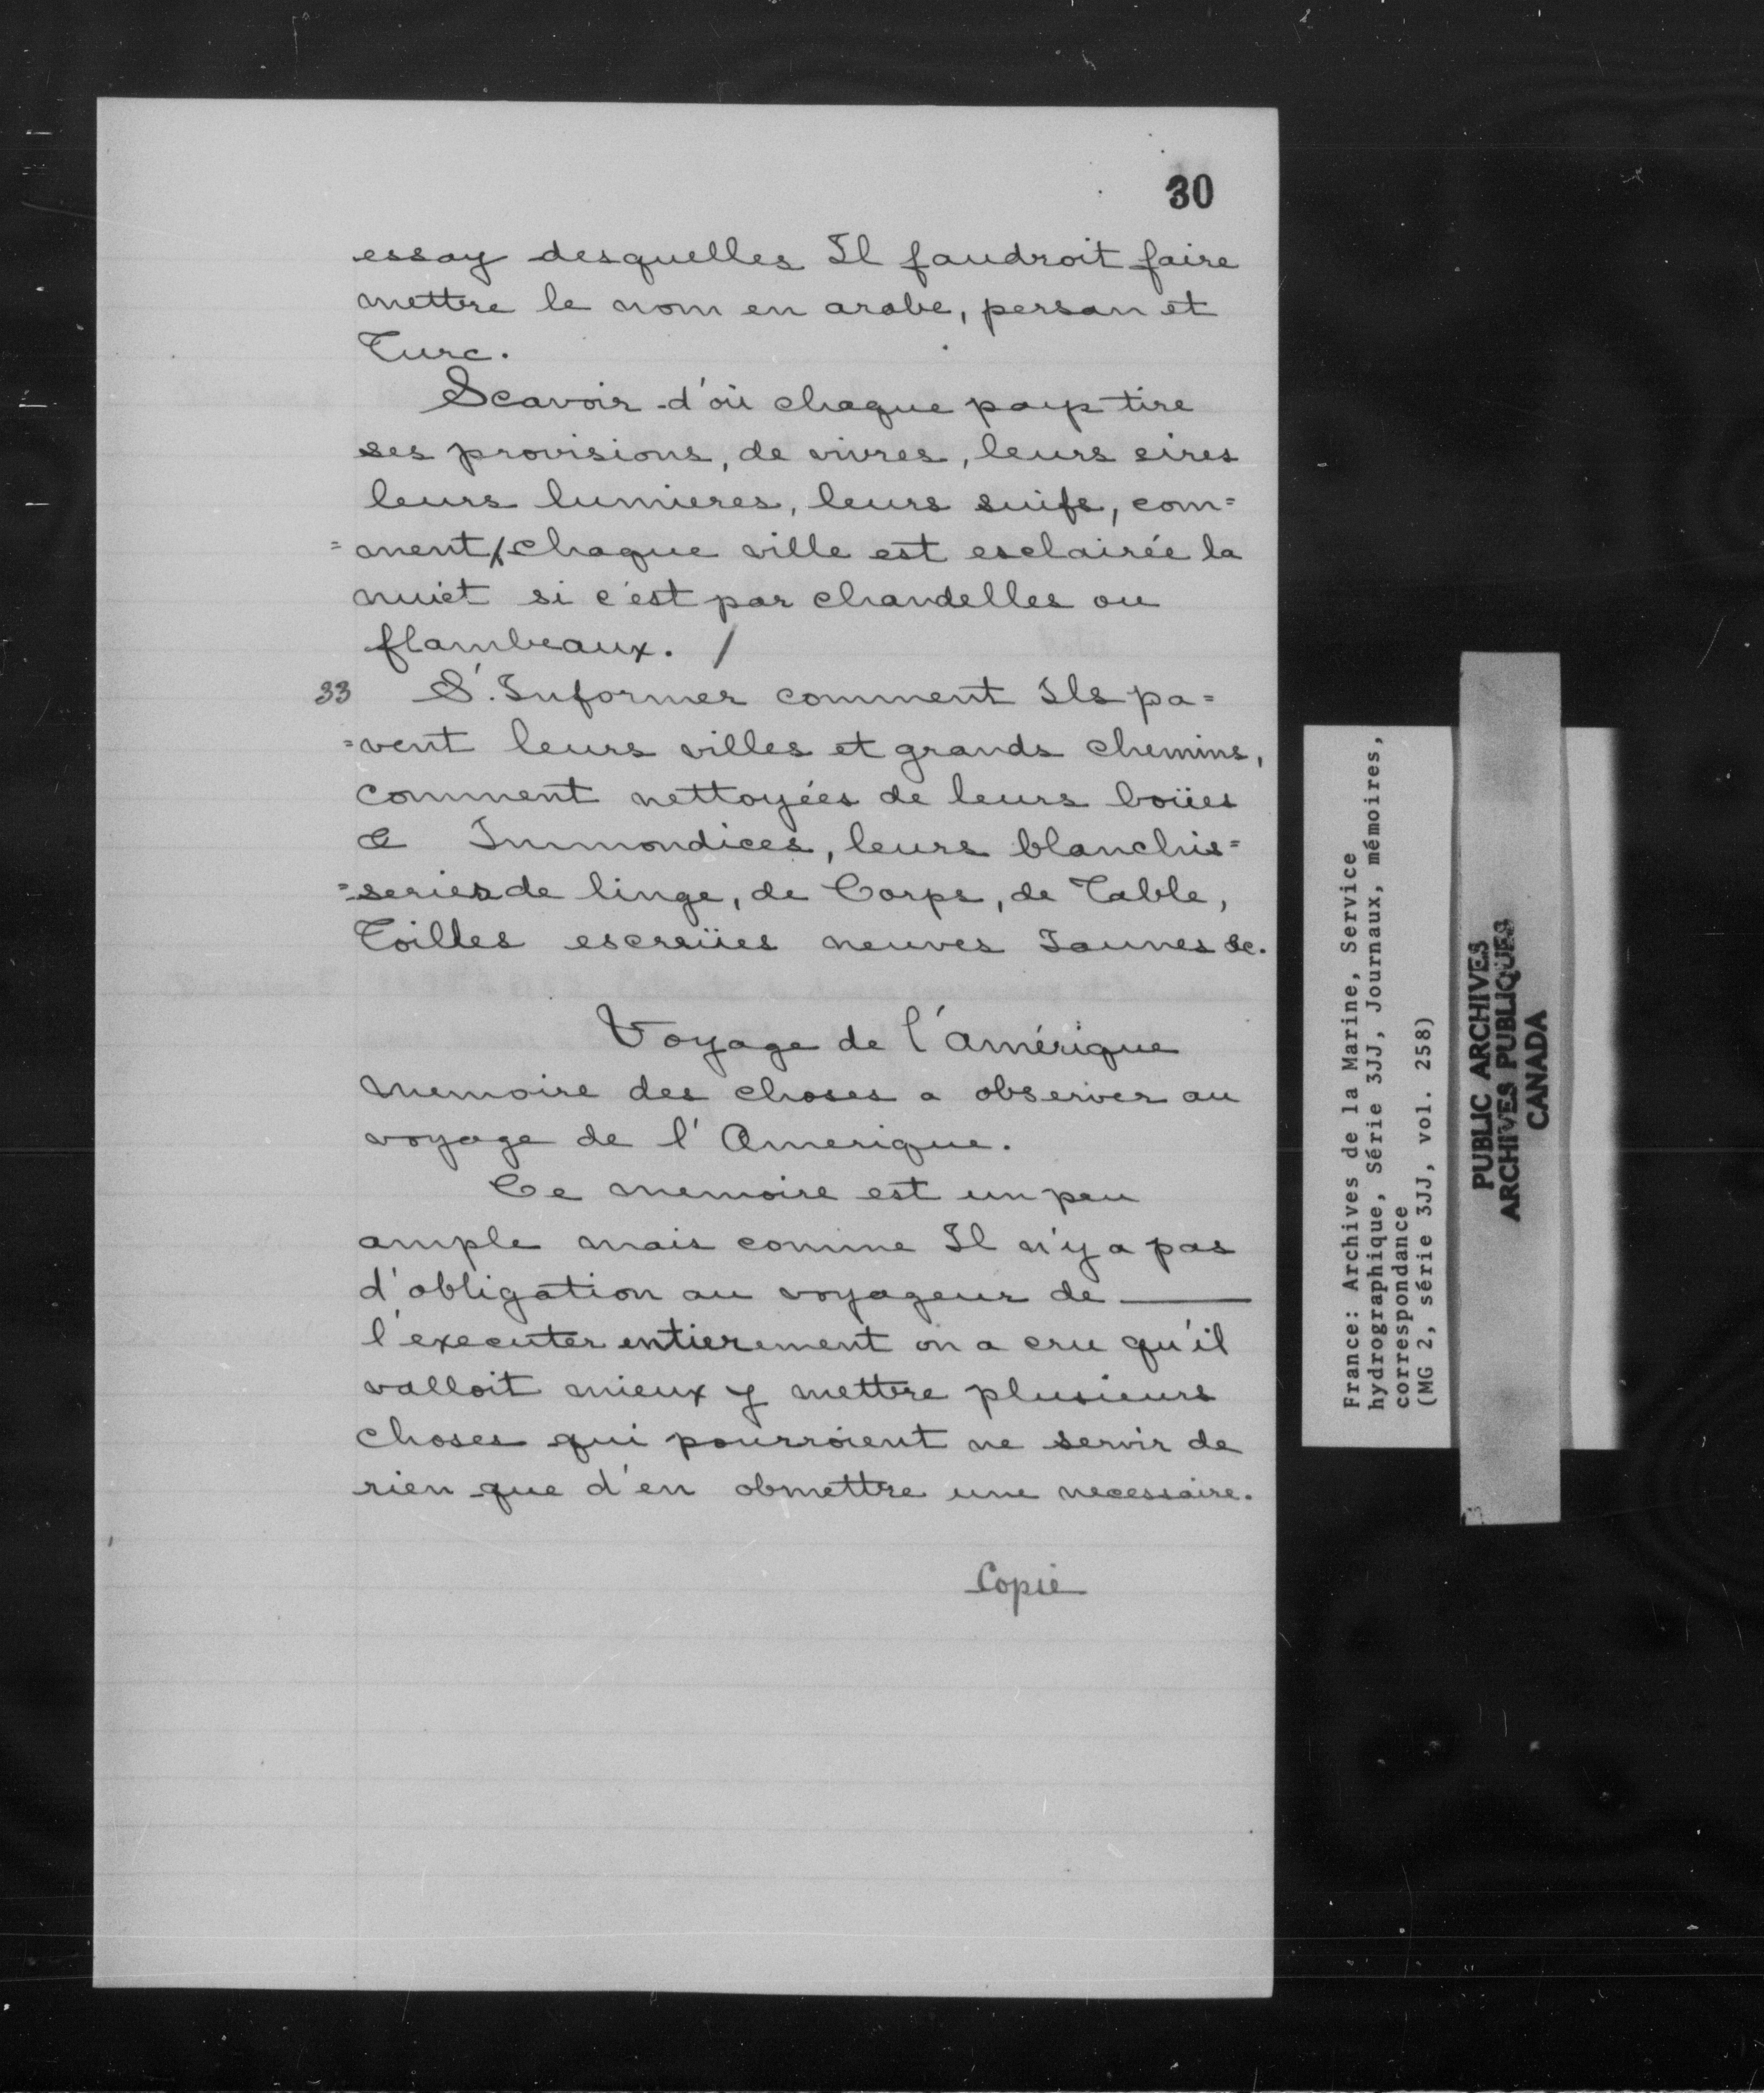 30
essay desquelles Il faudroit faire
mettre le nom en arabe, persan et
Turc.
Scavoir d'où chaque pays tire
ses provisions, de vivres, leurs cires
leurs lumieres, leurs suifs, com=
=ment chaque ville est esclairée la
nuict si c'est par chandelles ou
flambeaux. /
33 S'Informer comment Ils pa=
=vent leurs villes et grands chemins,
comment nettoyées de leurs boües
& Immondices, leurs blanchis=
=series de linge, de Corps, de Table,
Toilles escrües neuves Jaunes &c.
Voyage de l'Amérique
memoire des choses a observer au
voyage de l'Amerique.
Ce memoire est un peu
ample mais comme Il n'y a pas
d'obligation au voyageur de ——
l'executer entierement on a cru qu'il
valloit mieux y mettre plusieurs
choses qui pourroient ne servir de
rien que d'en obmettre une necessaire.
Copie
France: Archives de la Marine, Service
hydrographique, Série 3JJ, Journaux, mémoires,
correspondance
(MG 2, série 3JJ, vol. 258)
PUBLIC ARCHIVES
ARCHIVES PUBLIQUES
CANADA